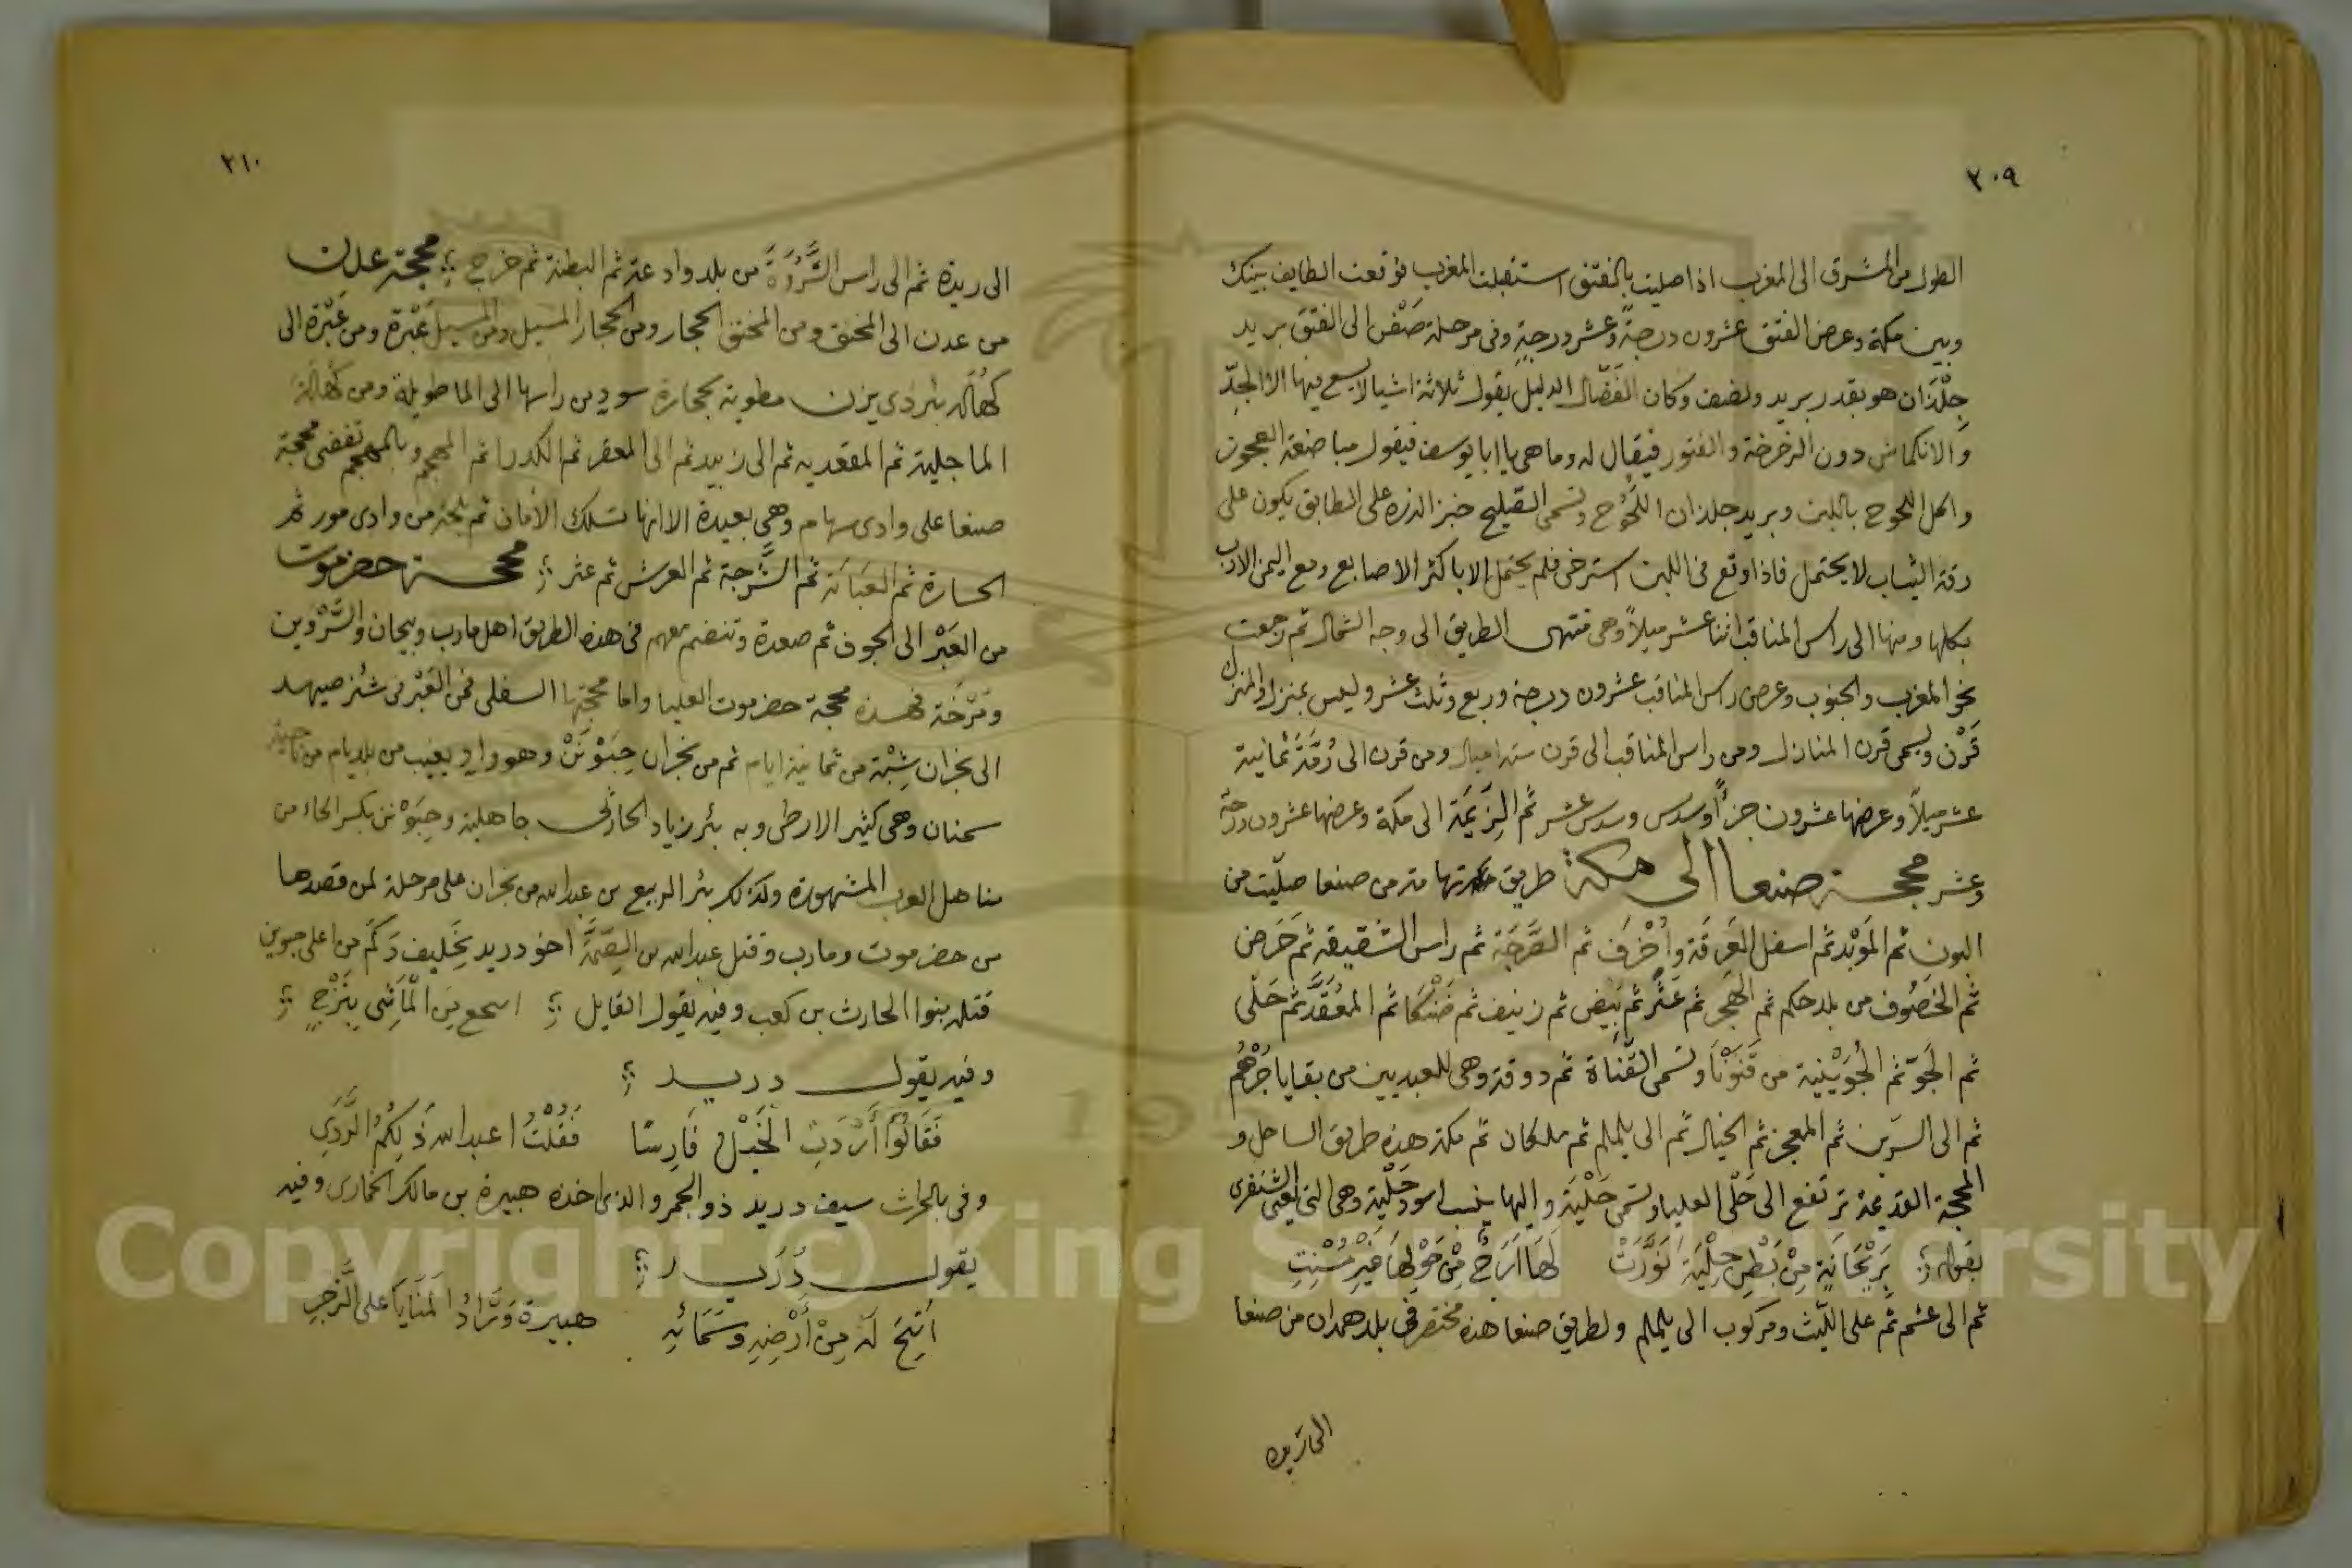 ٢٠٩
الطول من المشرق الى المغرب اذا صليت بالفتق استقبلت المغرب فوقعت الطايف بينك
وبين مكة وعرض الفتق عشرون درجةً وعشر درجةٍ وفى مرحلة صَفْن الى الفتق بريد
جِلْذَان هو بقدر بريد ونصف وكان الفَضّال الدليل يقول ثلاثة اشيا لا يسع فيها الا الجِدّ
والانكماش دون الرخرخة والفتور فيقال له وما هى يا ابا يوسف فيقول مباضعة العجوز
واكل اللحوح باللبن وبريد جلذان اللَّحُوح وتسمى القليح خبز الذره على الطابق يكون على
رقة الثياب لا يحتمل فاذا وقع فى اللبن استرخى فلم يحتمل الا باكثر الاصابع ومع اليمن الارب
بكلها ومنها الى راس المناقب اثنا عشر ميلاً وهى منتهى الطريق الى وجه الشمال ثم رجعت
نحو المغرب والجنوب وعرض راس المناقب عشرون درجة وربع وثلث عشر وليس بمنزل والمنزل
قَرْن ويسمى قرن المنازل ومن راس المناقب الى قرن ستة اميال ومن قرن الى رُمَّة ثمانية
عشر ميلاً وعرضها عشرون جزأً وسدس وسدس عشر ثم الزَيْمَة الى مكة وعرضها عشرون درجة
وعشر محجة صنعا الى مكة طريق تهامتها مَن من صنعا صِلّيت من
البون ثم المَوْبد ثم اسفل العَرِقَة وأَخْرَف ثم الصَّرحَة ثم راس الشقيقة ثم حَرَض
ثم الخَصُوف من بلد حكم ثم الهَجَر ثم عَثَّر ثم بَيض ثم زنيف ثم ضَنْكَان ثم المعُقَد ثم حَلْى
ثم الجَوّ ثم الجُوَيْنِية من قَنَوْنَا وتسمى القَنَاة ثم دوقة وهى للعبديين من بقايا جُرْهُم
ثم الى السرّين ثم المعجز ثم الخيال ثم الى يلملم ثم ملكان ثم مكة هذه طريق الساحل و
المحجة القديمة ترتفع الى حَلْى العليا وتسمى حَلْيَة واليها ينسب اسود حَلْية وهى التى يعنى الشنفرى
بقوله بِرَيْحَانَةٍ مِنْ بَطْنِ حِلْيَةَ نَوَّرَتْ لَهَا اَرَجٌ مِنْ حَوْلِهَا غَيْرُ مُسْنِتِ
ثم الى عشم ثم على اللّيث ومركوب الى يلملم ولطريق صنعا هذه مختصر فى بلد همدان من صنعا
الى ريده
٢١٠
الى ريدة ثم الى راس الشَّرْوَةَ من بلد وادعة ثم البطنة ثم خرج محجة عدن
من عدن الى المخنق ومن المخنق الحجار ومن الحجار المسيل ومن المسيل عَبْرَة ومن عَبْرَة الى
كَهَاله بئر ذى يزن مطوية بحجارة سود من راسها الى الما طويلة ومن كَهالة
الماجلية ثم المقعديه ثم الى زبيد ثم الى المعقر ثم الكدرا ثم المهجم وبالمهجم تفضى محجة
صنعا على وادى سهام وهى بعيدة الا انها تسلك الأمان ثم بلحة من وادى مور ثم
الحسارة ثم العَبَايَة ثم الشَّرجة ثم العرش ثم عثر محجة حضرموت
من العَبْر الى الجوف ثم صعدة وتنضم معهم فى هذه الطريق اهل مارب وبيحان والسَّرْوين
ومَرْخَة فهذه محجة حضرموت العليا واما محجتها السفلى فمن العَبْر فى شئز صيهد
الى نجران شِبْهٌ من ثمانية ايام ثم من نجران حِبَوْنَنْ وهو وادٍ يغيب من بلد يام من ناحية
سمنان وهى كثير الارطى وبه بئر زياد الحارثى جاهلية وحِبَوْنن بكسر الحاء من
مناهل العرب المشهورة وكذلك بئر الربيع بن عبدالله من نجران على مرحلة لمن قصدها
من حضرموت ومارب وقتل عبدالله بن الصِمَّة اخو دريد بخَليف دَكَم من اعلى حبونن
قتله بنوا الحارث بن كعب وفيه يقول القايل اسمع مِنَ المآشى بِتَرْجٍ
وفيه يقول دريد
فَقَالُوا أَرْدَتِ الْخَيْلُ فَارِسًا فَقُلْتُ اعبدالله ذَلِكُمُ الرَّدِي
وفى بالحراث سيف دريد ذو الجمر والذى اخذه هبيرة بن مالك الحمارى وفيه
يقول دُرَيد
أُتِيحَ لَهُ مِنْ أَرْضِهِ وسَمَائِهِ هبيرة وَرَّادُ الْمَنَايَا على الزَّجرِ